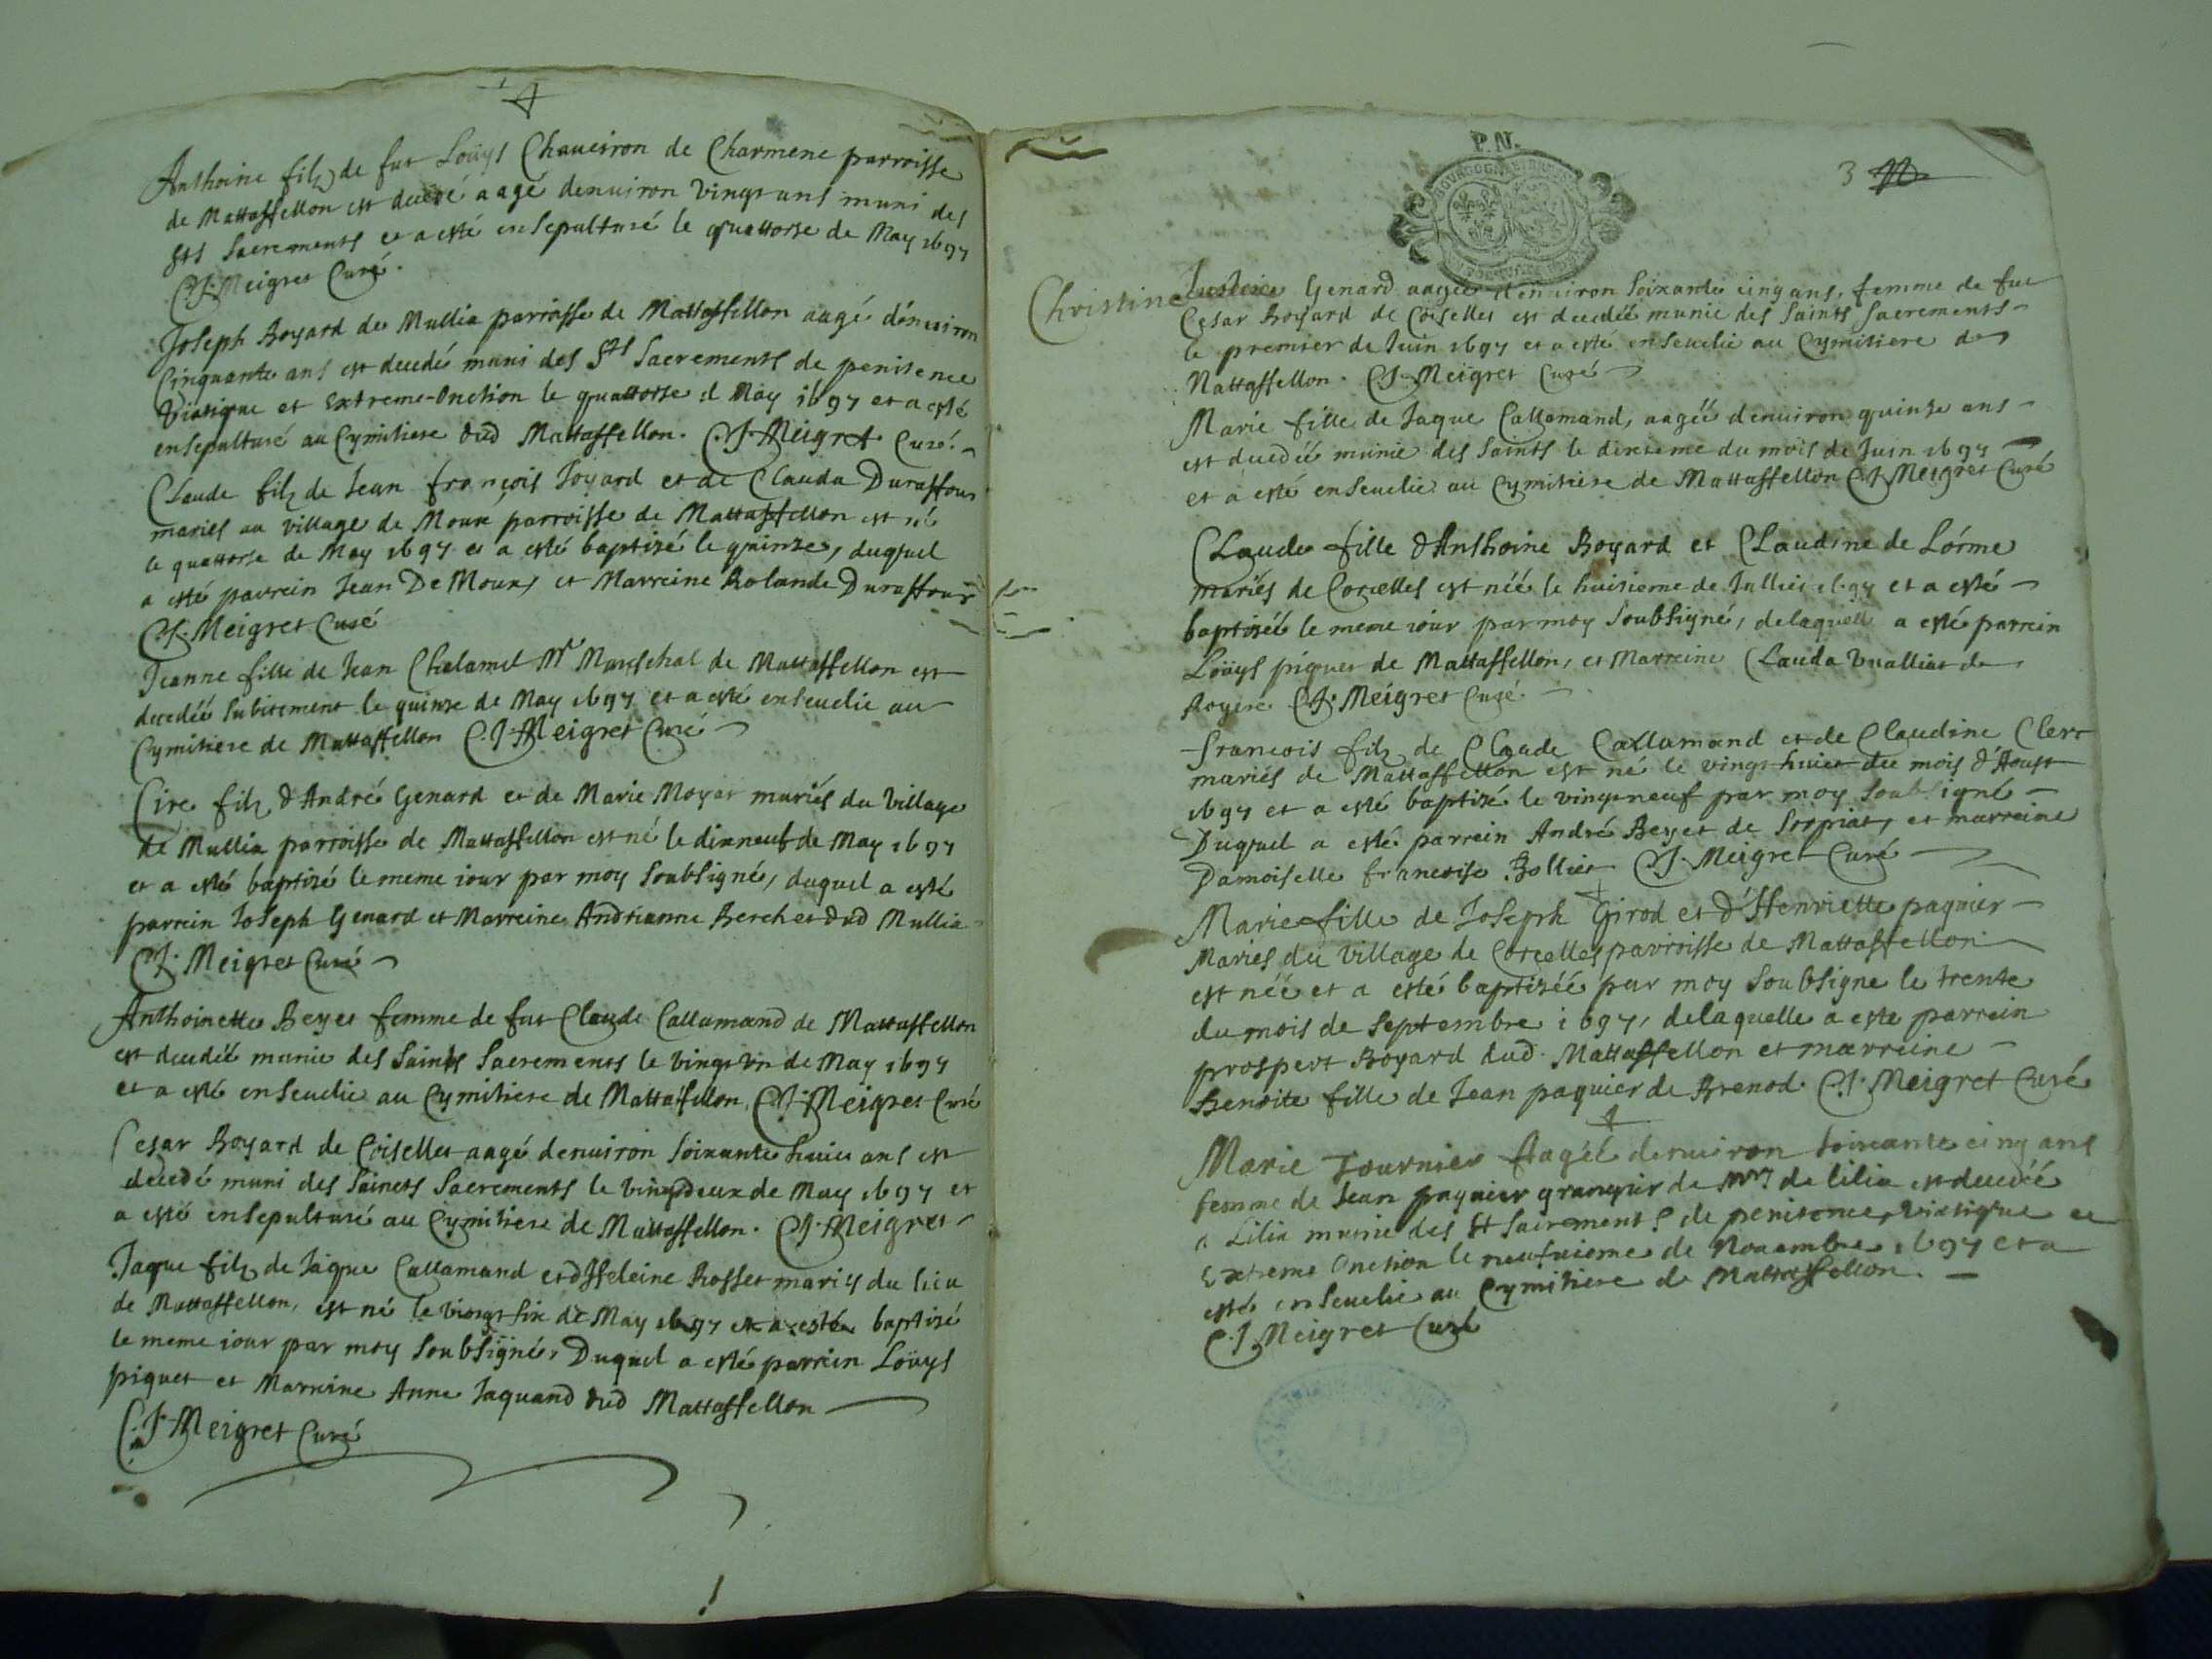 Anthoine filz de fut Loüys Chaueiron de Charmene parroisse
de Mattaffellon est decedé aagé denuiron vingt ans muni des
Sts Sacrements et a esté ensepulturé le quattorse de May 1697
C.J. Meigret Curé.
Joseph Boyard de Mullia parroisse de Mattaffellon aagé dénuiron
Cinquante ans est decedé muni des Sts Sacrements de penitence
Viatique et Extreme-Onction le quattorse d May 1697 et a esté
ensepulturé au Cymitiere dud Mattaffellon. C.J. Meigret Curé.
Claude filz de Jean françois Joyard et de Clauda Duraffour
mariés au village de Moux parroisse de Mattaffellon est né
le quattorse de May 1697 et a esté baptizé le quinze, duquel
a esté parrein Jean De Moux, et Marreine Rolande Duraffour
C.J. Meigret Curé
Jeanne fille de Jean Chalamel Mr Mareschal de Mattaffellon est
decedéé subitement le quinze de May 1697 et a esté enseuelie au
Cymitiere de Mattaffellon C.J. Meigret Curé
Cire filz d'André Genard et de Marie Moyar mariés du village
de Mullia parroisse de Mattaffellon est né le dixneuf de May 1697
et a esté baptizé le meme iour par moy soubsigné, duquel a esté
parrein Joseph Genard et Marreine Andrianne Berchet dud Mullia
C.J. Meigret Curé
Anthoinette Beyet femme de fut Claude Callamand de Mattaffellon
est decedéé munie des Saints Sacrements le vingt vn de May 1697
et a esté enseuelie au Cymitiere de Mattaffellon C.J. Meigret Curé
Cesar Boyard de Coiselles aagé denuiron soixante huict ans est
decedé muni des Saincts Sacrements le vingtdeux de May 1697 et
a esté ensepulturé au Cymitiere de Mattaffellon. C.J. Meigret
Jaque filz de Jaque Callamand et d' Rosset mariés du lieu
de Mattaffellon, est né le vingt six de May 1697 et a esté baptizé
le meme iour par moy soubsigné, Duquel a esté parrein Loüys
piquet et Marreine Anne Jaquand dud Mattaffellon
C.J. Meigret Curé
P.N.
3
Christine Genard aagéé denuiron soixante cinq ans, femme de fut
Cesar Boyard de Coiselles est decedéé munie des Saints Sacrements
le premier de Juin 1697 et a esté enseuelie au Cymitiere de
Mattaffellon. C.J. Meigret Curé
Marie fille de Jaque Callamand, aagéé denuiron quinze ans
est decedéé munie des Saints le dixieme du mois de Juin 1697
et a esté enseuelie au Cymitiere de Mattaffellon C.J. Meigret Curé
Claude fille d'Anthoine Boyard et Claudine de Lórme
mariés de Corcelles est néé le huitieme de Juillet 1697 et a esté
baptizéé le meme iour par moy Soubsigné, delaquelle a esté parrein
Loüys piquet de Mattaffellon, et Marreine Clauda Vualliat de
Royere C.J. Meigret Curé.
francois filz de Claude Callamand et de Claudine Clerc
mariés de Mattaffellon est né le vingt huict du mois d'Aoust
1697 et a esté baptizé le vingtneuf par moy soubsigné
Duquel a esté parrein André Beyet de Sirpiat, et marreine
Damoiselle francoise Bollier C.J. Meigret Curé
Marie fille de Joseph Girod et d'Henriette paquier
Mariés du village de Corcelles parroisse de Mattaffellon
est néé et a esté baptizéé par moy Soubsigne le trente
du mois de Septembre 1697, delaquelle a este parrein
prospert Boyard dud. Mattaffellon et marreine
Benoite fille de Jean paquier de Brenod. C.J. Meigret Curé
Marie Tournier Aagéé denuiron soixante cinq ans
femme de Jean paquier grangier de de lilia est decedéé
a Lilia munie des St Sacrements de penitence, Viatique et
Extreme Onction le neufuieme de Nouembre 1697 et a
esté enseuelie au Cymitiere de Mattaffellon.
C.J. Meigret Curé